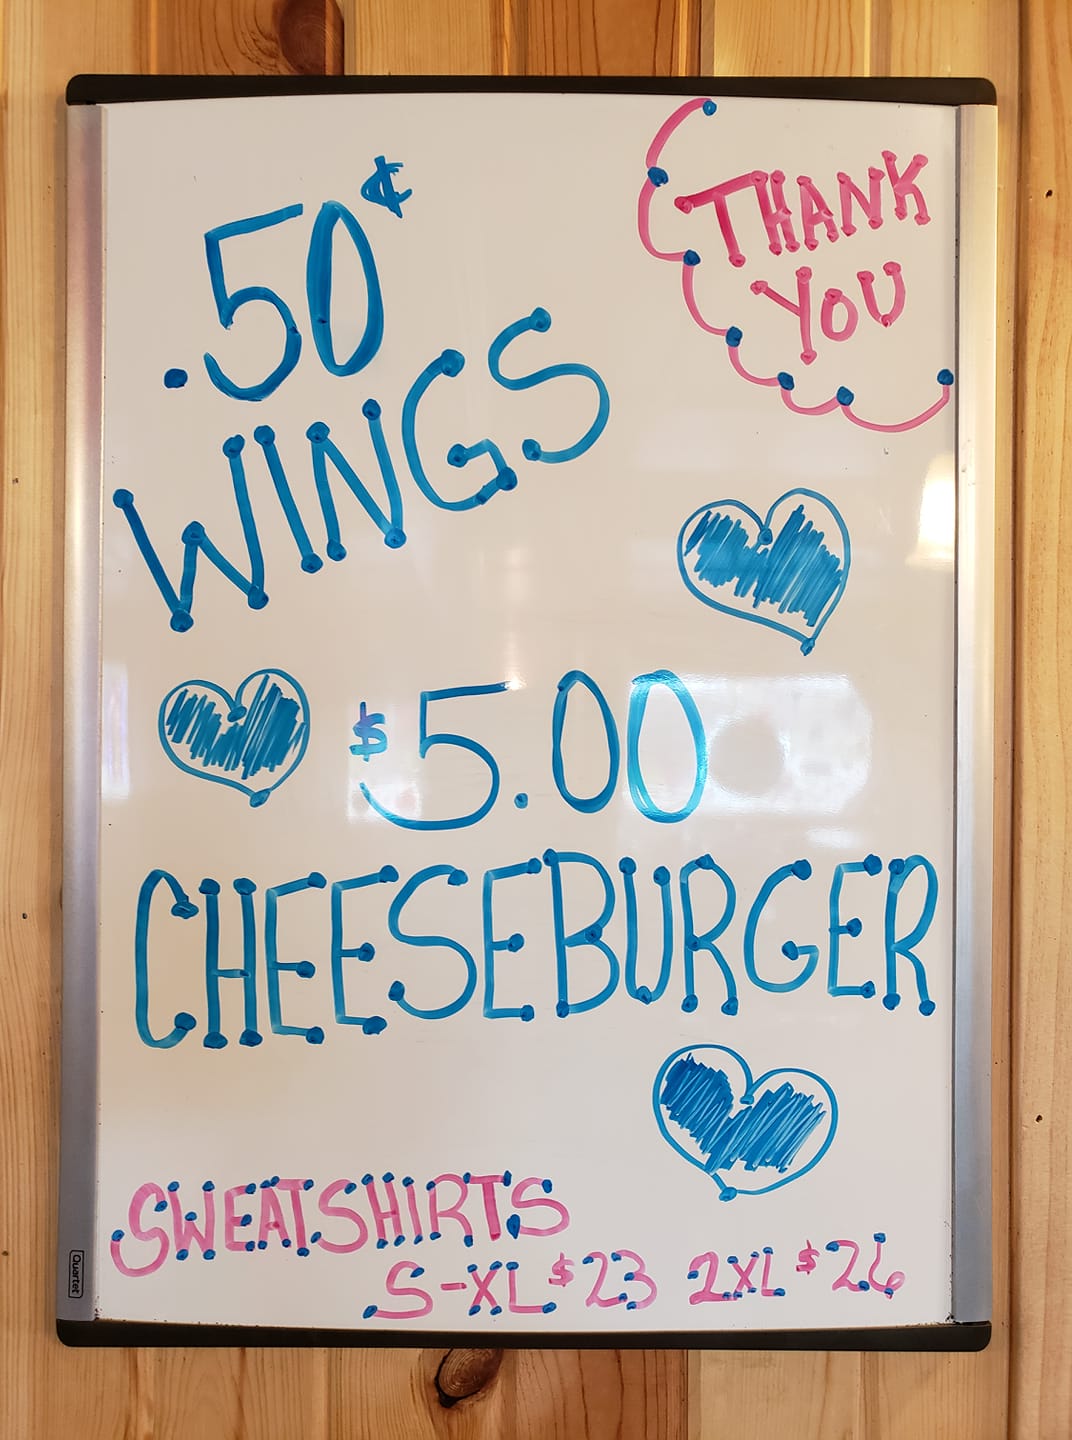 .50¢
WINGS
THANK
YOU
$5.00
CHEESEBURGER
SWEATSHIRTS
S-XL $23 2XL $26
Quartet